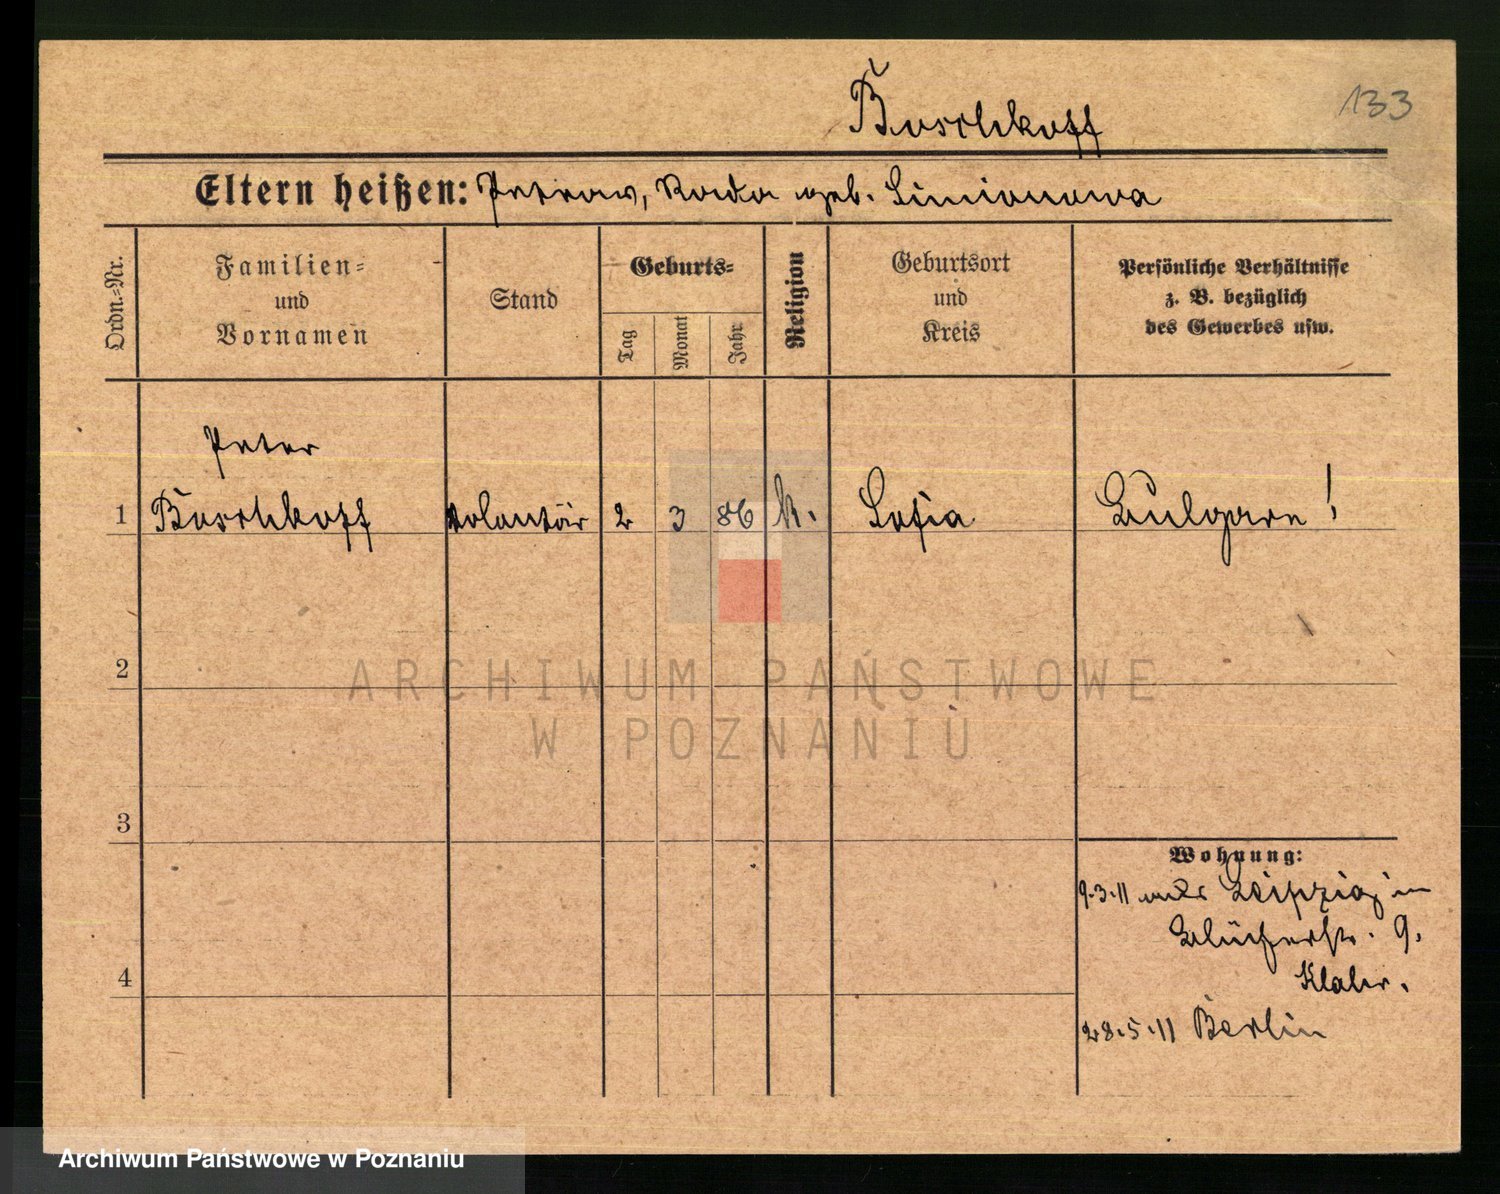 Boschkoff
133
Eltern heißen: Petrow, Rada geb. Simionowa
Ordn.=Nr.
Familien=
und
Vornamen
Stand
Geburts=
Tag
Monat
Jahr
Religion
Geburtsort
und
Kreis
Persönliche Verhältnisse
z. B. bezüglich
des Gewerbes usw.
Peter
1 Boschkoff Volontär 2 3 86 k. Sofia Bulgare!
2
3
4
Wohnung:
9.3.11 Leipzig
Blücherstr. 9.
28.5.11 Berlin
ARCHIWUM PAŃSTWOWE
W POZNANIU
Archiwum Państwowe w Poznaniu